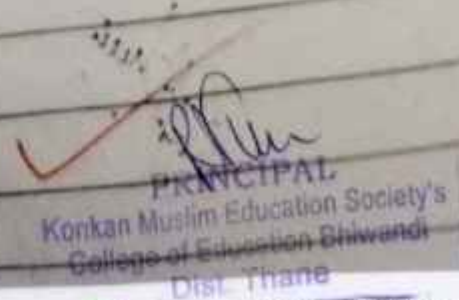 PRINCIPAL
Konkan Muslim Education Society's
College of Education Bhiwandi
Dist. Thane